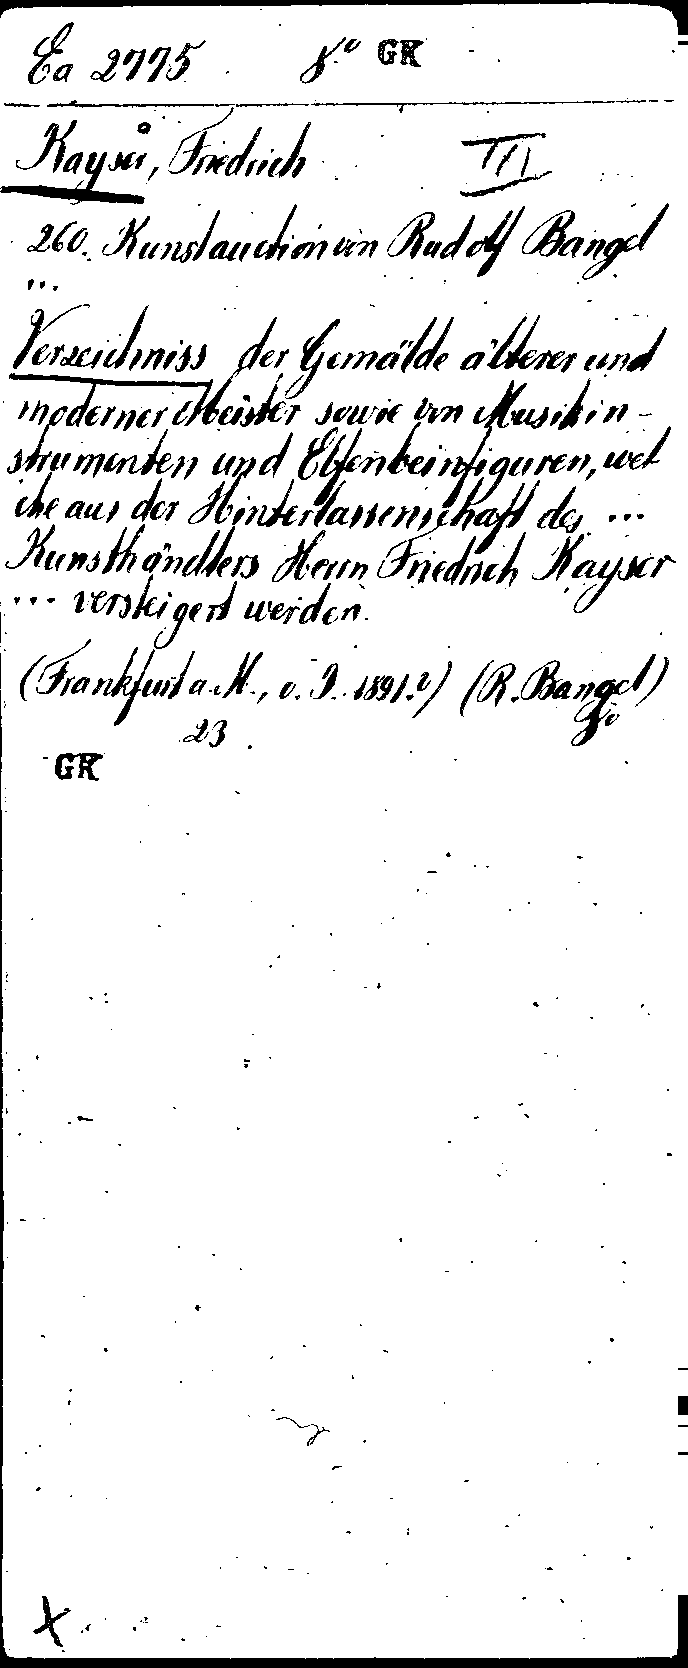 Ea 2775 8° GK
Kayser, Friedrich III
260. Kunstauction von Rudolf Bangel
...
Verzeichniss der Gemälde älterer und
moderner Meister sowie von Musikin-
strumenten und Elfenbeinfiguren, wel
che aus der Hinterlassenschaft des ...
Kunsthändlers Herrn Friedrich Kayser
... versteigert werden.
(Frankfurt a. M., o. J. 1891.?) (R. Bangel)
23
GK
X